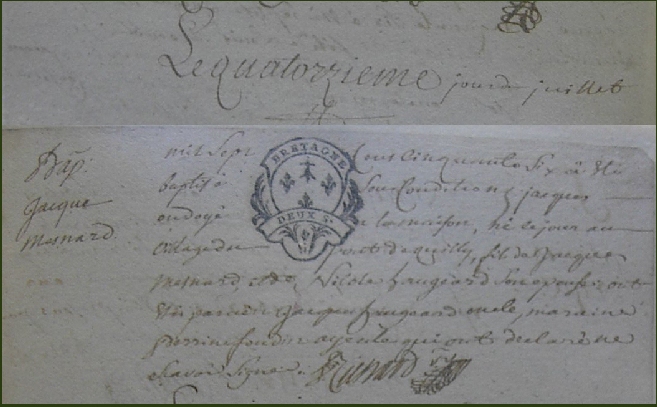 Le quatorzieme jour de juillet
Bap.
Jacque
Mesnard
mil sept cent cinquante six a été
baptisé sous condition jacques
ondoyé a la maison, né ce jour au
village du pont de quilly, fils de Jacques
Mesnard et de Nicole fougeard son epouse, ont
été parein Jacques fougeard oncle, maraine
perrine ayeole qui ont declaré ne
scavoir signer
BRETAGNE
DEUX S.